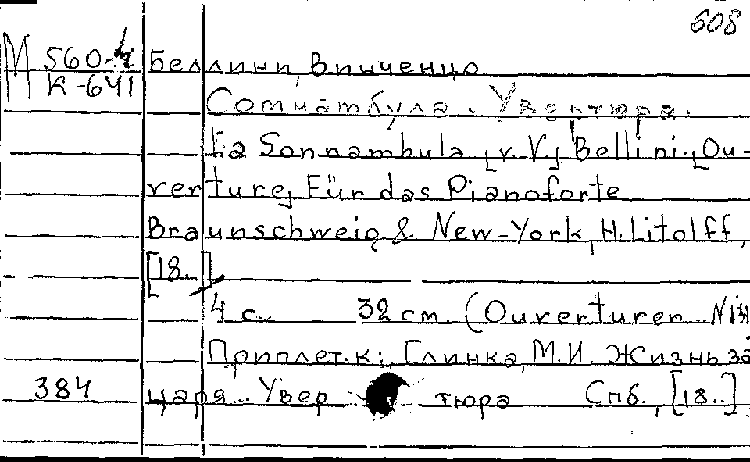 608
М 560-4 Беллини, Винченцо
К-641
Сомнамбула. Увертюра.
La Sonnambula [v. V.] Bellini. [Ou-
verture] Für das Pianoforte
Braunschweig & New-York, H. Litolff,
[18..]
4 с. 32 см. (Ouverturen N
Приплет. к: Глинка, М.И. Жизнь за
384 царя.. Увер тюра Спб., [18..]